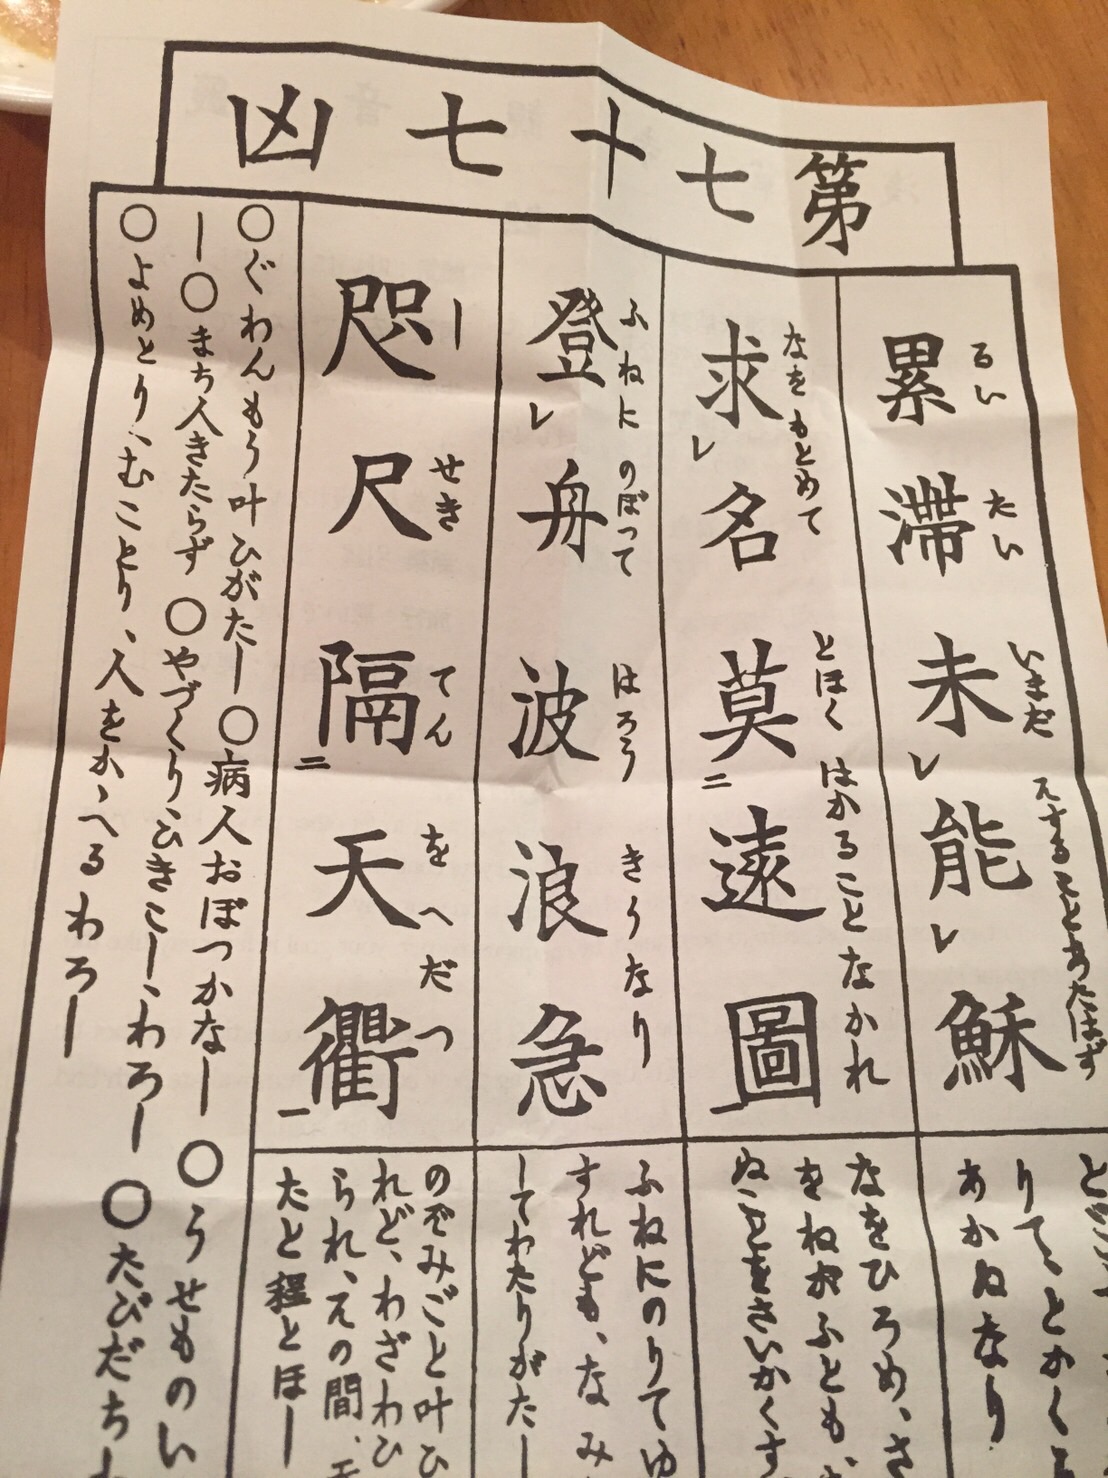 第七十七凶
累滞未レ能レ穌
るいたいいまだ
求レ名莫二遠圖一
なをもとめてとほくはかることなかれ
登レ舟波浪急
ふねにのぼつてはろうきうなり
咫尺隔二天衢一
しせきてんをへだつ
りてもとかく
あかぬなり
なをひろめ、さ
をねがふとも、
ふねにのりてゆ
すれども、なみ
してわたりがたし
のぞみごと叶ひ
れど、わざわひ
られ、其の間、天
たと程とほし
○ぐわんもう叶ひがたし ○病人おぼつかなし ○うせものい
し ○まち人きたらず ○やづくり、ひきこし、わろし ○たびだち
○よめとり、むことり、人をかゝへるわろし